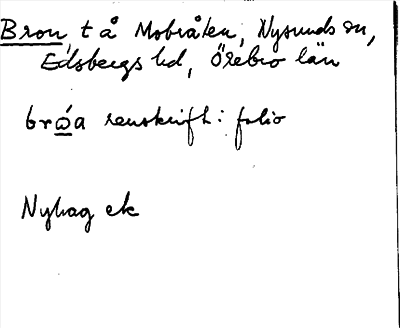 Bron, t å Mobråten, Nysunds sn,
Edsbergs hd, Örebro län
brώa renskrift: folio
Nyhag ek